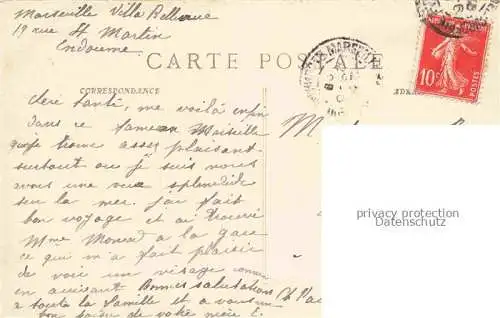 Marseille Villa Bellevue
19 rue St Martin
Endoume
CARTE POSTALE
CORRESPONDANCE
10
chere Santé, me voilà enfin
dans ce fameux Marseille
que je trouve assez plaisant
surtout ou je suis nous
avons une vue splendide
sur la mer. j'ai fait
bon voyage et ai trouvé
Mme a la gare
ce qui m'a fait plaisir
de voir un visage connu
en arrivant Bonnes salutations
a toute la famille et a vous
bon de votre
privacy protection
Datenschutz